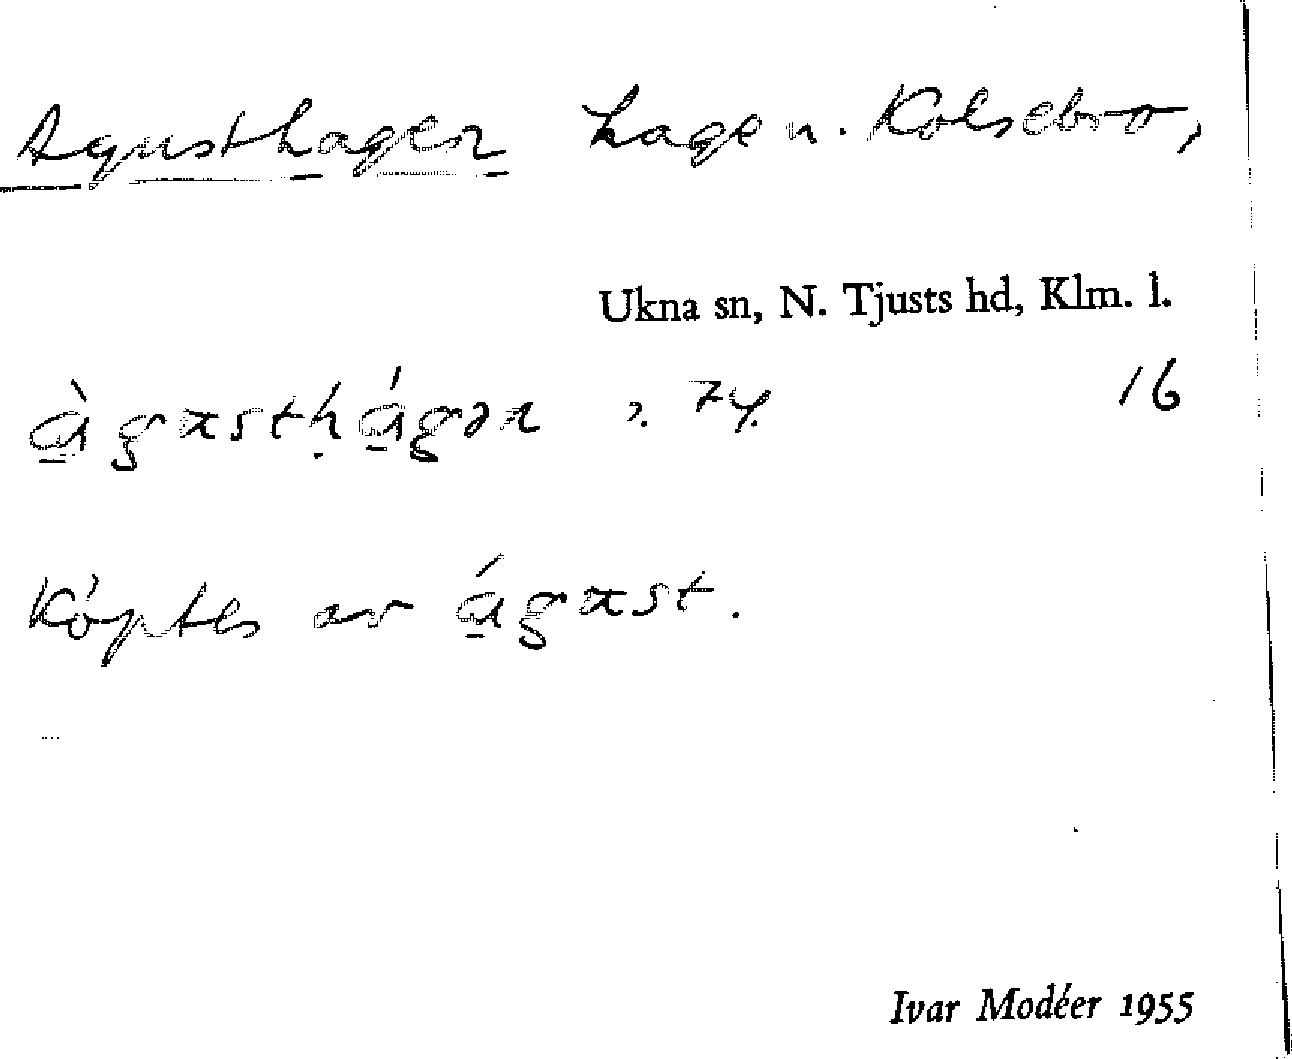 Agusthagen hage n. Kolsebro,
Ukna sn, N. Tjusts hd, Klm. l.
àgusthágən 2. 74. 16
Köptes av águst.
Ivar Modéer 1955